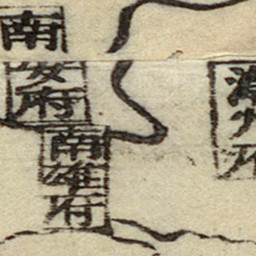 漳州府
南安府
南雄府